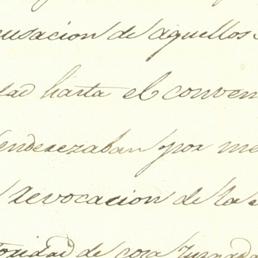 usacion de aquellos
dad hasta el conven
enderezaban por me
revocacion de la
toridad de cosa Juzgada